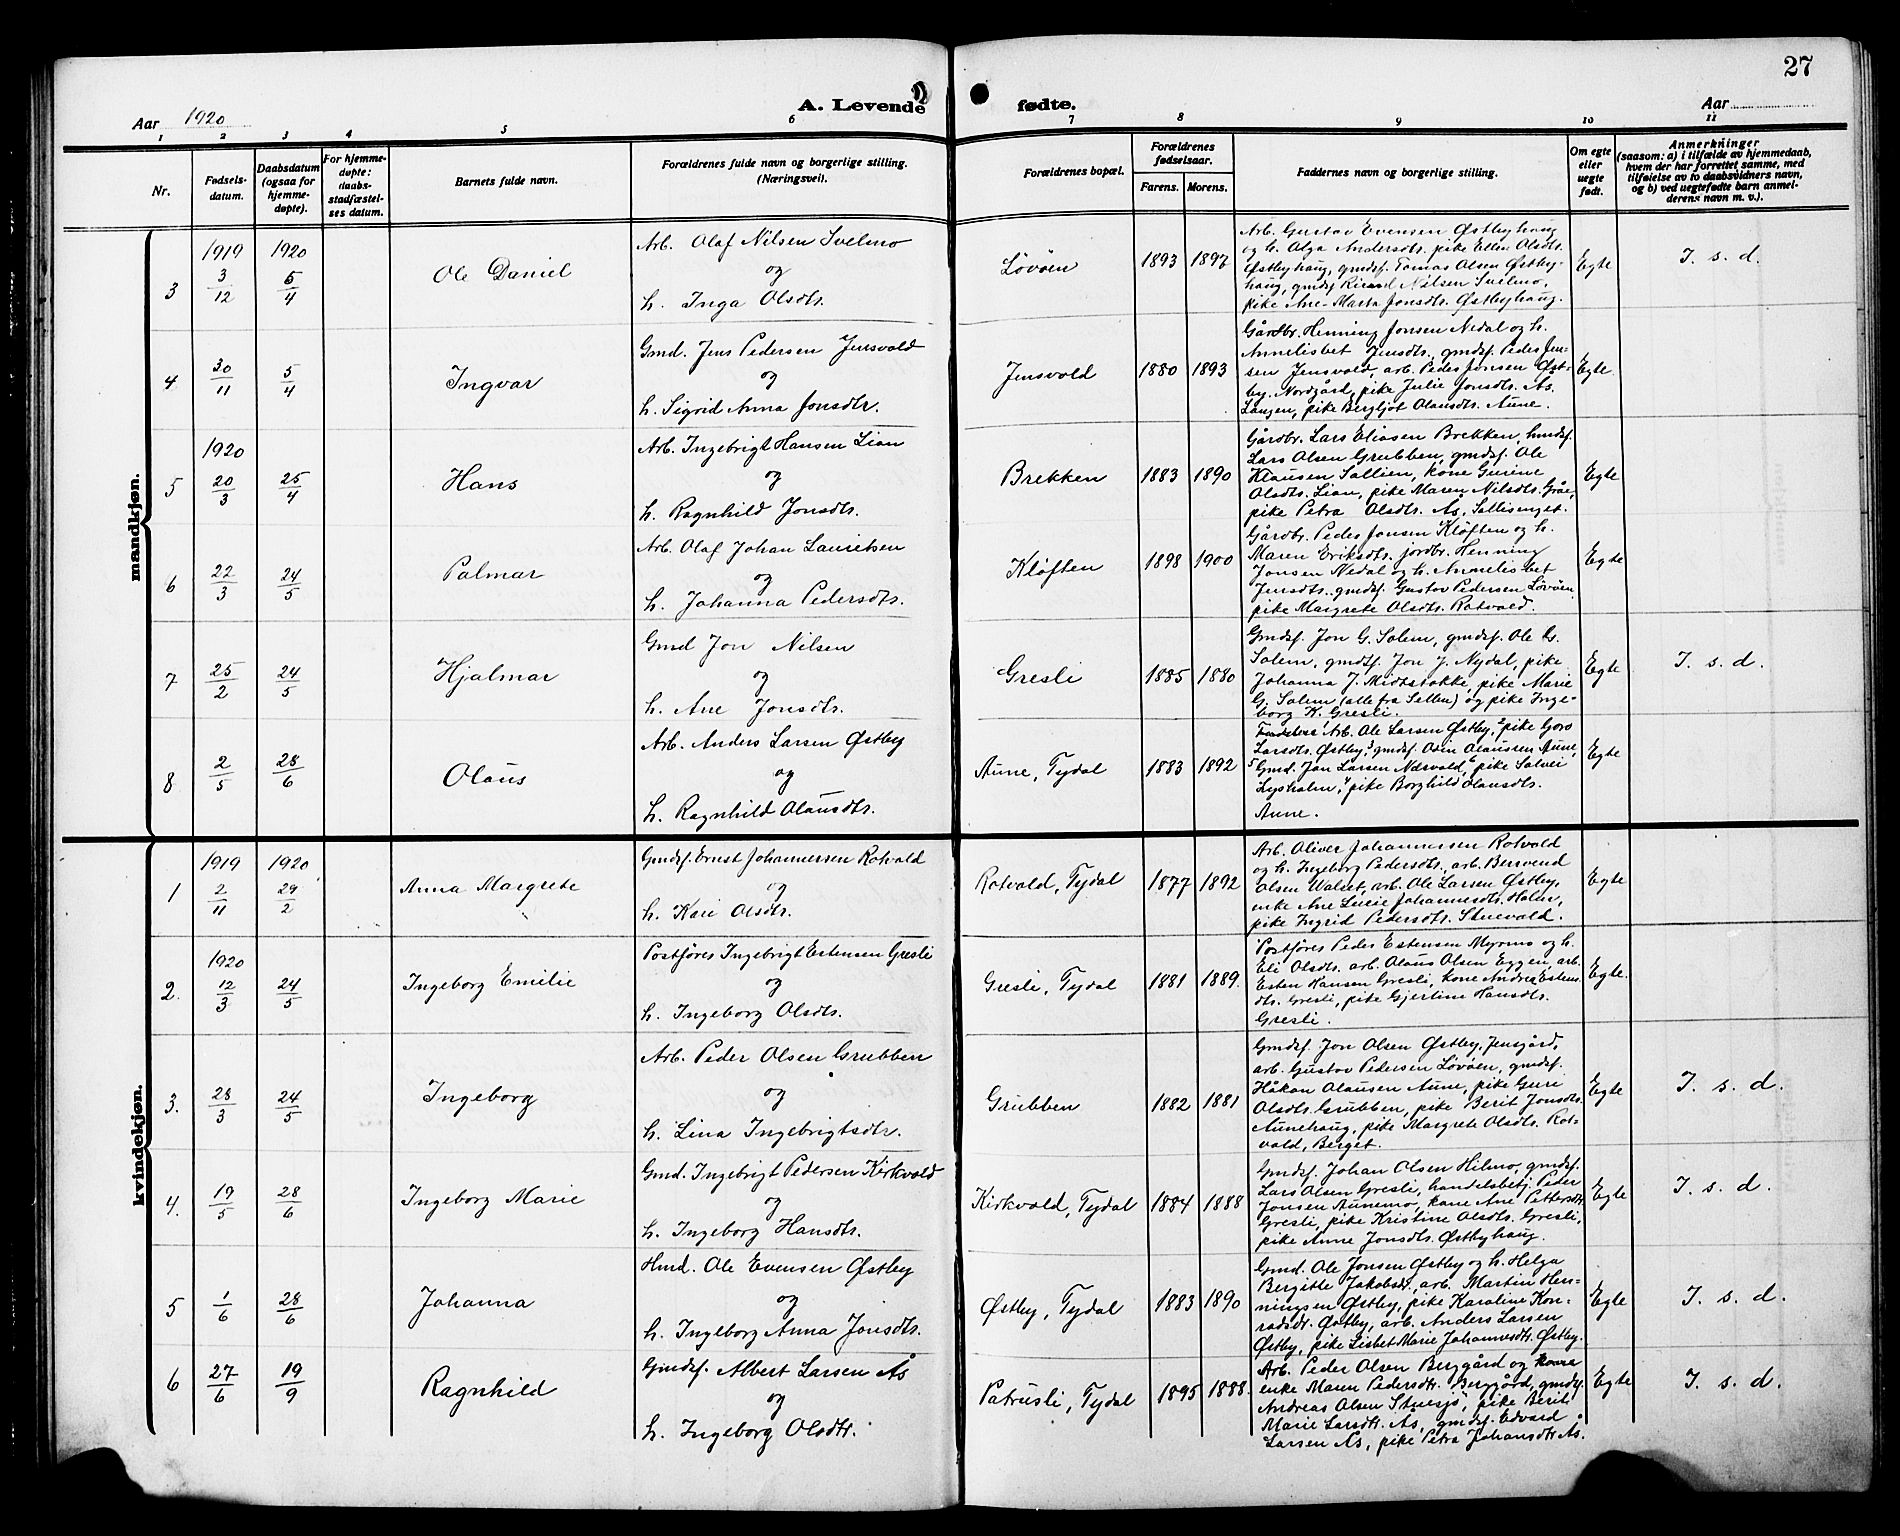 27
Aar 1920
A. Levende fødte.
Aar
1 2 3 4 5 6 7 8 9 10 11
Nr.
Fødsels-
datum.
Daabsdatum
(ogsaa for
hjemme-
døpte).
For hjemme-
døpte:
daabs-
stadfæstel-
ses datum.
Barnets fulde navn.
Forældrenes fulde navn og borgerlige stilling.
(Næringsvei).
Forældrenes bopæl.
Forældrenes
fødselsaar.
Farens. Morens.
Faddernes navn og borgerlige stilling.
Om egte
eller
uegte
født.
Anmerkninger
(saasom: a) i tilfælde av hjemmedaab,
hvem der har forrettet samme, med
tilføielse av to daabsvidners navn,
og b) ved uegtefødte barn anmel-
derens navn m. v.).
mandkjøn.
1919 1920
3 3/12 5/4
Ole Daniel
Arb. Olaf Nilsen Svelmo
og
h. Inga Olsdtr.
Løvøen
1893 1897
Arb. Gustav Evensen Østbyhaug
og h. Olga Andersdtr. pike Ellen Olsdtr.
Østbyhaug, gmdsf. Tomas Olsen Østby-
haug, gmdsf Nilsen Svelmo,
pike Ane-Marta Jonsdtr. Østbyhaug.
Egte
I. s. d.
4 30/11 5/4
Ingvar
Gmd. Jens Pedersen Jensvold
og
h. Sigrid Anna Jonsdtr.
Jensvold
1880 1893
Gårdbr. Henning Jonsen Nedal og h.
Annelisbet Jensdtr., gmdsf. Peder Jen-
sen Jensvold, arb. Peder Jonsen Øst-
by. Nordgård, pike Julie Jonsdtr. Ås.
Langen, pike Bergljot Olausdtr. Aune.
Egte.
1920
5 20/3 25/4
Hans
Arb. Ingebrigt Hansen Lian
og
h. Ragnhild Jonsdtr.
Brekken
1883 1890
Gårdbr. Lars Eliasen Brekken, hmdsf.
Lars Olsen Grubben, gmdsf. Ole
Klausen Sallien, kone Gurine
Olsdtr. Lian, pike Maren Nilsdtr. Gråe,
pike Petra Olsdtr. Ås, Sellisenget.
Egte
6 22/3 24/5
Palmar
Arb. Olaf Johan Lauritsen
og
h. Johanna Pedersdtr.
Kløften
1898 1900
Gårdbr. Peder Jonsen Kløften og h.
Maren Eriksdtr. jordbr. Henning
Jonsen Nedal og h. Annelisbet
Jensdtr. gmdsf. Gustav Pedersen Løvøen
pike Margrete Olsdtr. Rotvold.
Egte
7 25/2 24/5
Hjalmar
Gmd Jon Nilsen
og
h. Ane Jonsdtr.
Gresli
1885 1880
Gmdsf. Jon G. Solem, gmdsf. Ole G.
Solem, gmdsf. Jon J. Nydal, pike
Johanna J. Midtstokke, pike Marie
G. Solem (alle fra Selbu) og pike Inge-
borg K. Gresli.
Egte
I. s. d.
8 2/5 28/6
Olaus
Arb. Anders Larsen Østby
og
h. Ragnhild Olausdtr.
Aune, Tydal
1883 1892
Arb. Ole Larsen Østby, pike Goro
Larsdtr. Østby, gmdsf. Odin Olaussen Aune,
Gmd. Jon Larsen Næsvold, pike Solvei
Lysholm, pike Borghild Olausdtr.
Aune.
Egte
kvindekjøn.
1919 1920
1 2/11 29/2
Anna Margrete
Gmdsf. Ernst Johannessen Rotvold
og
h. Kari Olsdtr.
Rotvold, Tydal
1877 1892
Arb. Oliver Johannessen Rotvold
og h. Ingeborg Pedersdtr. arb. Bersvend
Olsen Walset, arb. Ole Larsen Østby,
enke Ane Lucie Johannesdtr. Holm,
pike Ingrid Pedersdtr. Stuevold.
Egte
1920
2. 12/3 24/5
Ingeborg Emilie
Postfører Ingebrigt Estensen Gresli
og
h. Ingeborg Olsdtr.
Gresli, Tydal
1881 1889.
Postfører Peder Estensen Myrmo og h.
Eli Olsdtr. arb. Olaus Olsen Eggen, arb.
Esten Hansen Gresli, kone Andrea Estens-
dtr. Gresli, pike Gjertine Hansdtr.
Gresli.
Egte.
3. 28/3 24/5
Ingeborg
Arb. Peder Olsen Grubben
og
h. Lina Ingebrigtsdtr.
Grubben
1882 1881
Gmdsf. Jon Olsen Østby, Jensgård,
arb. Gustav Pedersen Løvøen, gmdsf.
Håkon Olausen Aune, pike Guri
Olsdtr. Grubben, pike Berit Jonsdtr.
Aunehaug, pike Margrete Olsdtr. Rot-
vold, Berget.
Egte
I. s. d.
4. 19/5 28/6
Ingeborg Marie
Gmd. Ingebrigt Pedersen Kirkvold
og
h. Ingeborg Hansdtr.
Kirkvold, Tydal
1884 1888
Gmdsf. Johan Olsen Hilmo, gmdsf.
Lars Olsen Gresli, handelsbetj. Peder
Jonsen Aunemo, kone Ane Pettersdtr.
Gresli, pike Kristine Olsdtr. Gresli,
pike Anne Jonsdtr. Østbyhaug.
Egte
I. s. d.
5 1/6 28/6
Johanna
Hmd. Ole Evensen Østby
og
h. Ingeborg Anna Jonsdtr.
Østby, Tydal
1883 1890
Gmd. Ole Jonsen Østby og h. Helga
Bergitte Jakobsdr, arb. Martin Hen-
ningsen Østby, pike Karoline Kon-
radsdr. Østby, arb. Anders Larsen
Østby, pike Lisbet Marie Johannesdtr. Østby.
Egte
I. s. d.
6 27/6 19/9
Ragnhild
Gmdsf. Albert Larsen Ås
og
h. Ingeborg Olsdtr.
Patrusli, Tydal
1895 1888.
Arb. Peder Olsen Berggård og
enke Maren Pedersdtr. Berggård, gmdsf.
Andreas Olsen Stuesjø, pike Berit
Marie Larsdtr. Ås, gmdsf. Edvard
Larsen Ås, pike Petra Johansdtr Ås.
Egte
I. s. d.